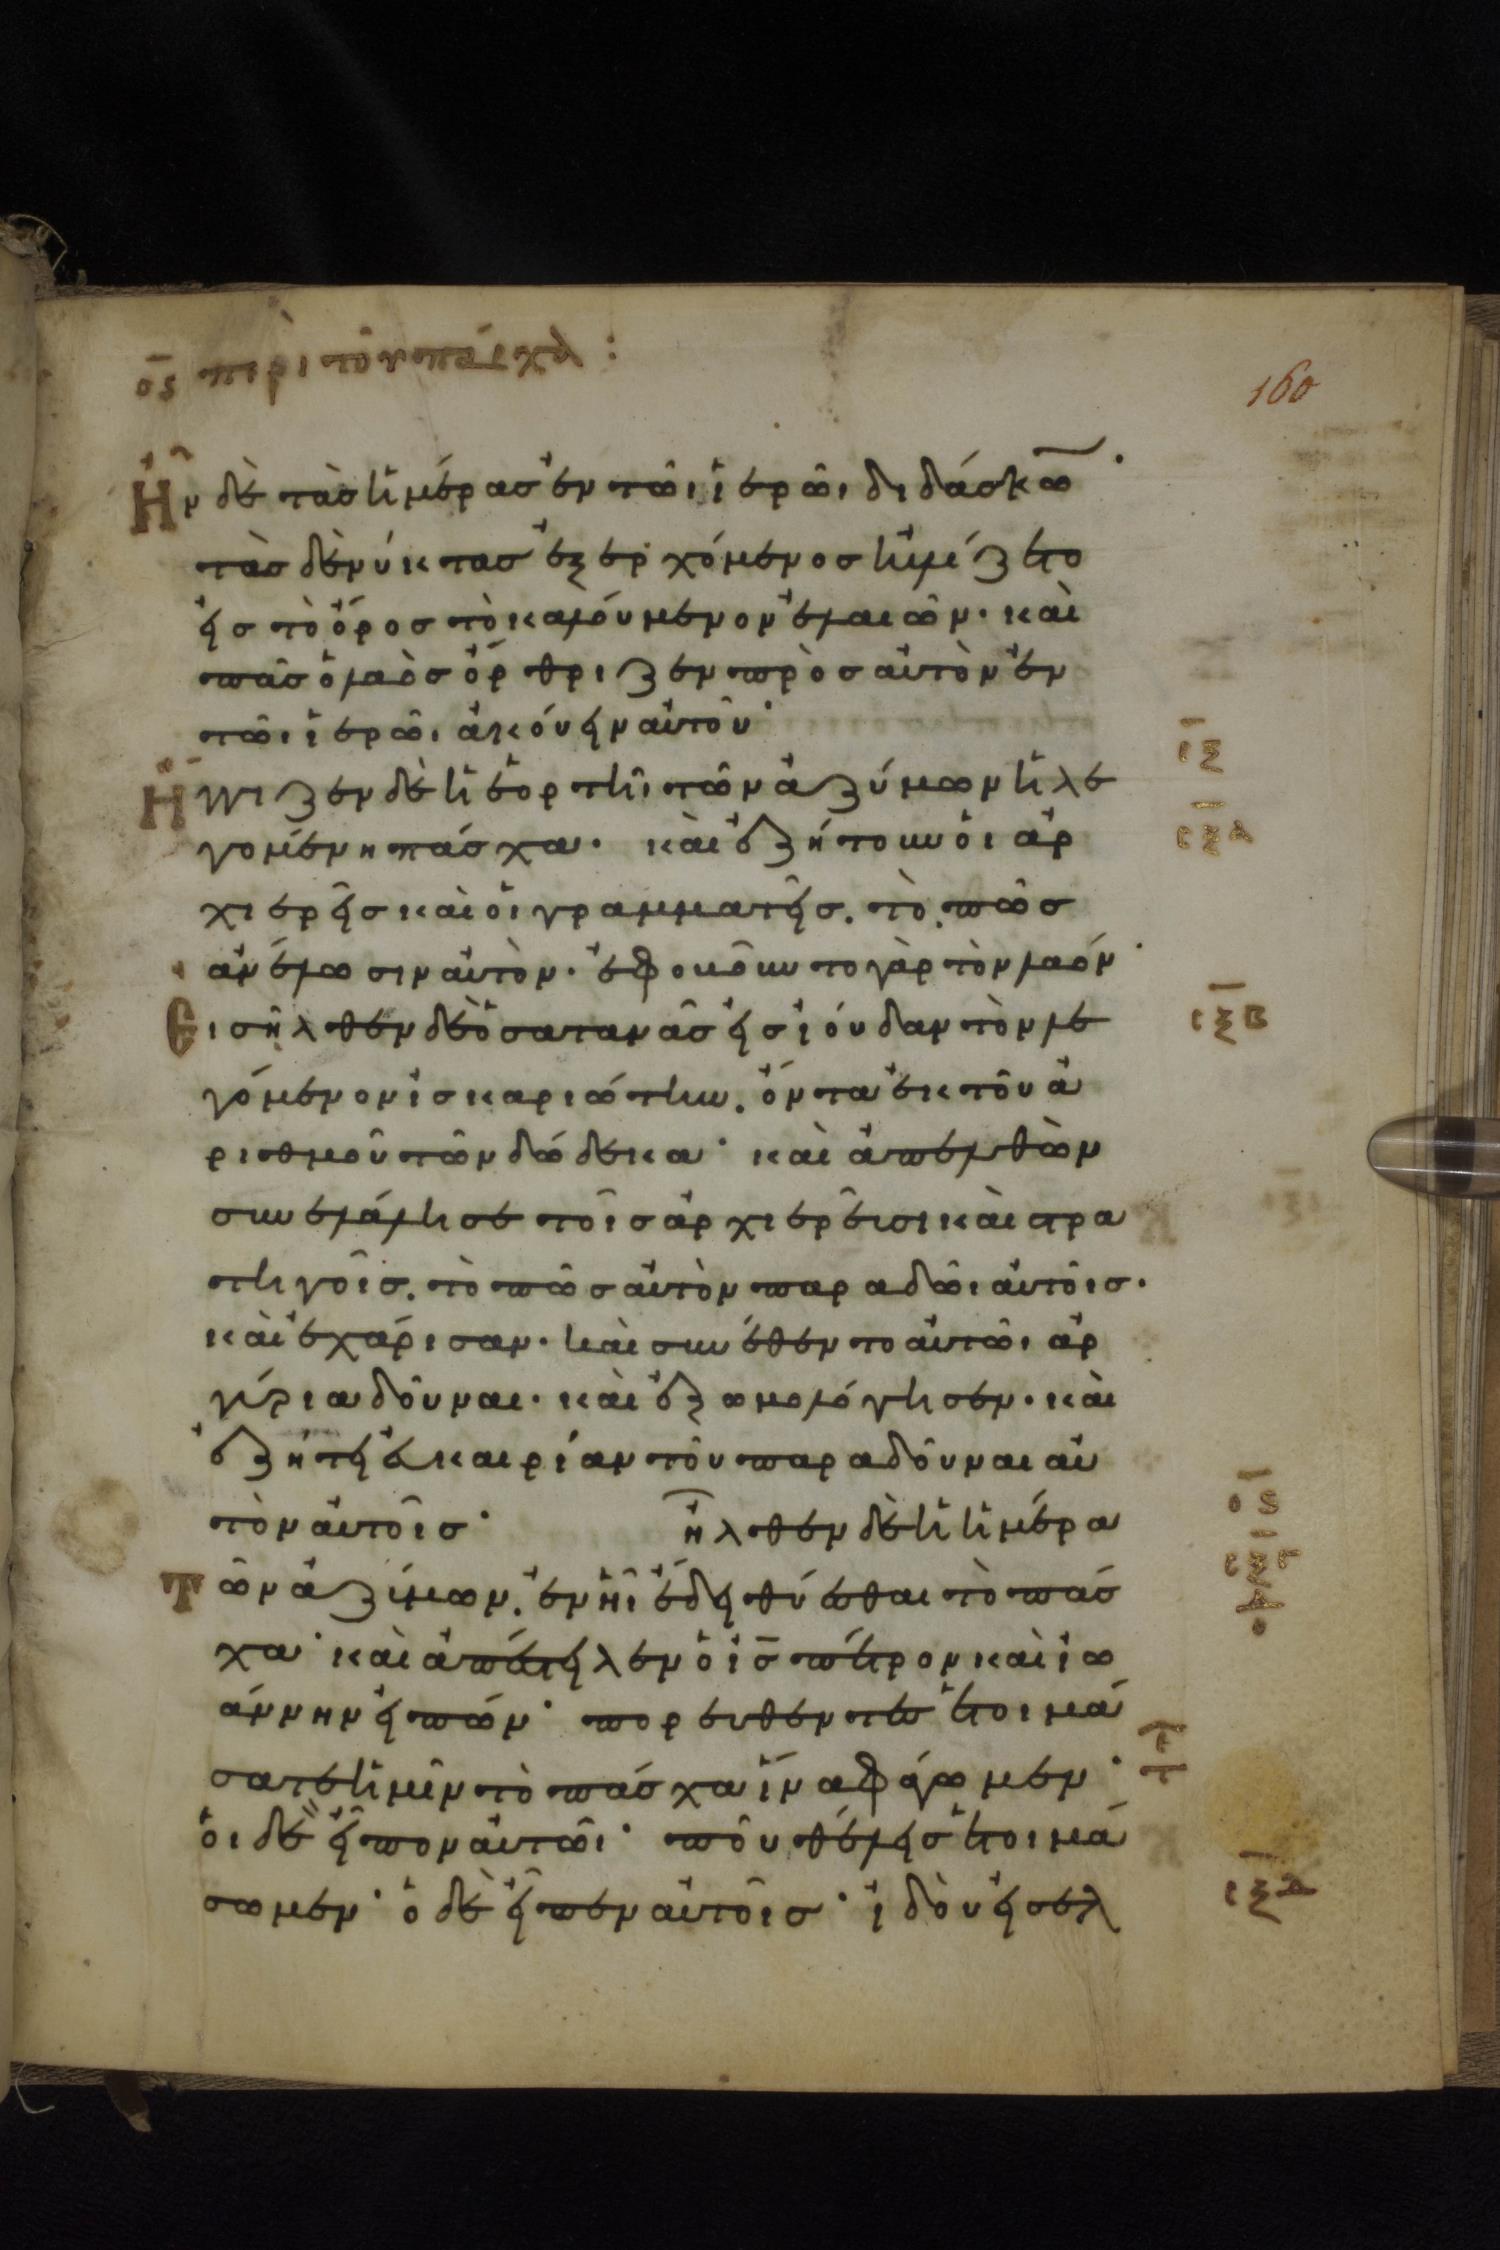 ος περὶ τοῦ πάσχα :
160
Ἦν δὲ τὰς ἡμέρας ἐν τῶι ἱερῶι διδάσκω̅·
τὰς δὲ νύκτας ἐξερχόμενος ηὐλίζετο
εἰς τὸ ὄρος τὸ καλούμενον ἐλαιῶν· καὶ
πᾶς ὁ λαὸς ὄρθριζεν πρὸς αὐτὸν ἐν
τῶι ἱερῶι ἀκούειν αὐτοῦ·
Ἤγγιζεν δὲ ἡ ἑορτὴι τῶν ἀζύμων ἡ λε
γομένη πάσχα· καὶ ἐζήτουν οἱ ἀρ
χιερεῖς καὶ οἱ γραμματεῖς. τὸ πῶς
ἀνέλωσιν αὐτὸν· ἐφοβοῦντο γὰρ τὸν λαόν·
Εἰσῆλθεν δὲ ὁ σατανᾶς εἰς ἰούδαν τὸν λε
γόμενον ἰσκαριώτην. ὄντα ἐκ τοῦ ἀ
ριθμοῦ τῶν δώδεκα· καὶ ἀπελθὼν
συνελάλησε τοῖς ἀρχιερεῦσι καὶ στρα
τηγοῖς. τὸ πῶς αὐτὸν παραδῶι αὐτοῖς·
καὶ ἐχάρισαν· καὶ συνέθεντο αὐτῶι ἀρ
γύρια δοῦναι· καὶ ἐξωμολόγησεν· καὶ
ἐζήτει εὐκαιρίαν τοῦ παραδοῦναι αὐ
τὸν αὐτοῖς· ἦλθεν δὲ ἡ ἡμέρα
Τῶν ἀζύμων. ἐν ἧι ἔδει θύεσθαι τὸ πάσ
χα· καὶ ἀπέστειλεν ὁ ις̅ πέτρον καὶ ἰω
άννην εἰπών· πορευθέντες ἑτοιμά
σατε ἡμῖν τὸ πάσχα ἵνα φάγωμεν·
οἱ δὲ εἶπον αὐτῶι· ποῦ θέλεις ἑτοιμά
σωμεν· ὁ δὲ εἶπεν αὐτοῖς· ἰδοὺ εἰσελ
σξ
σξα
σξβ
ος
σξγ
σξδ